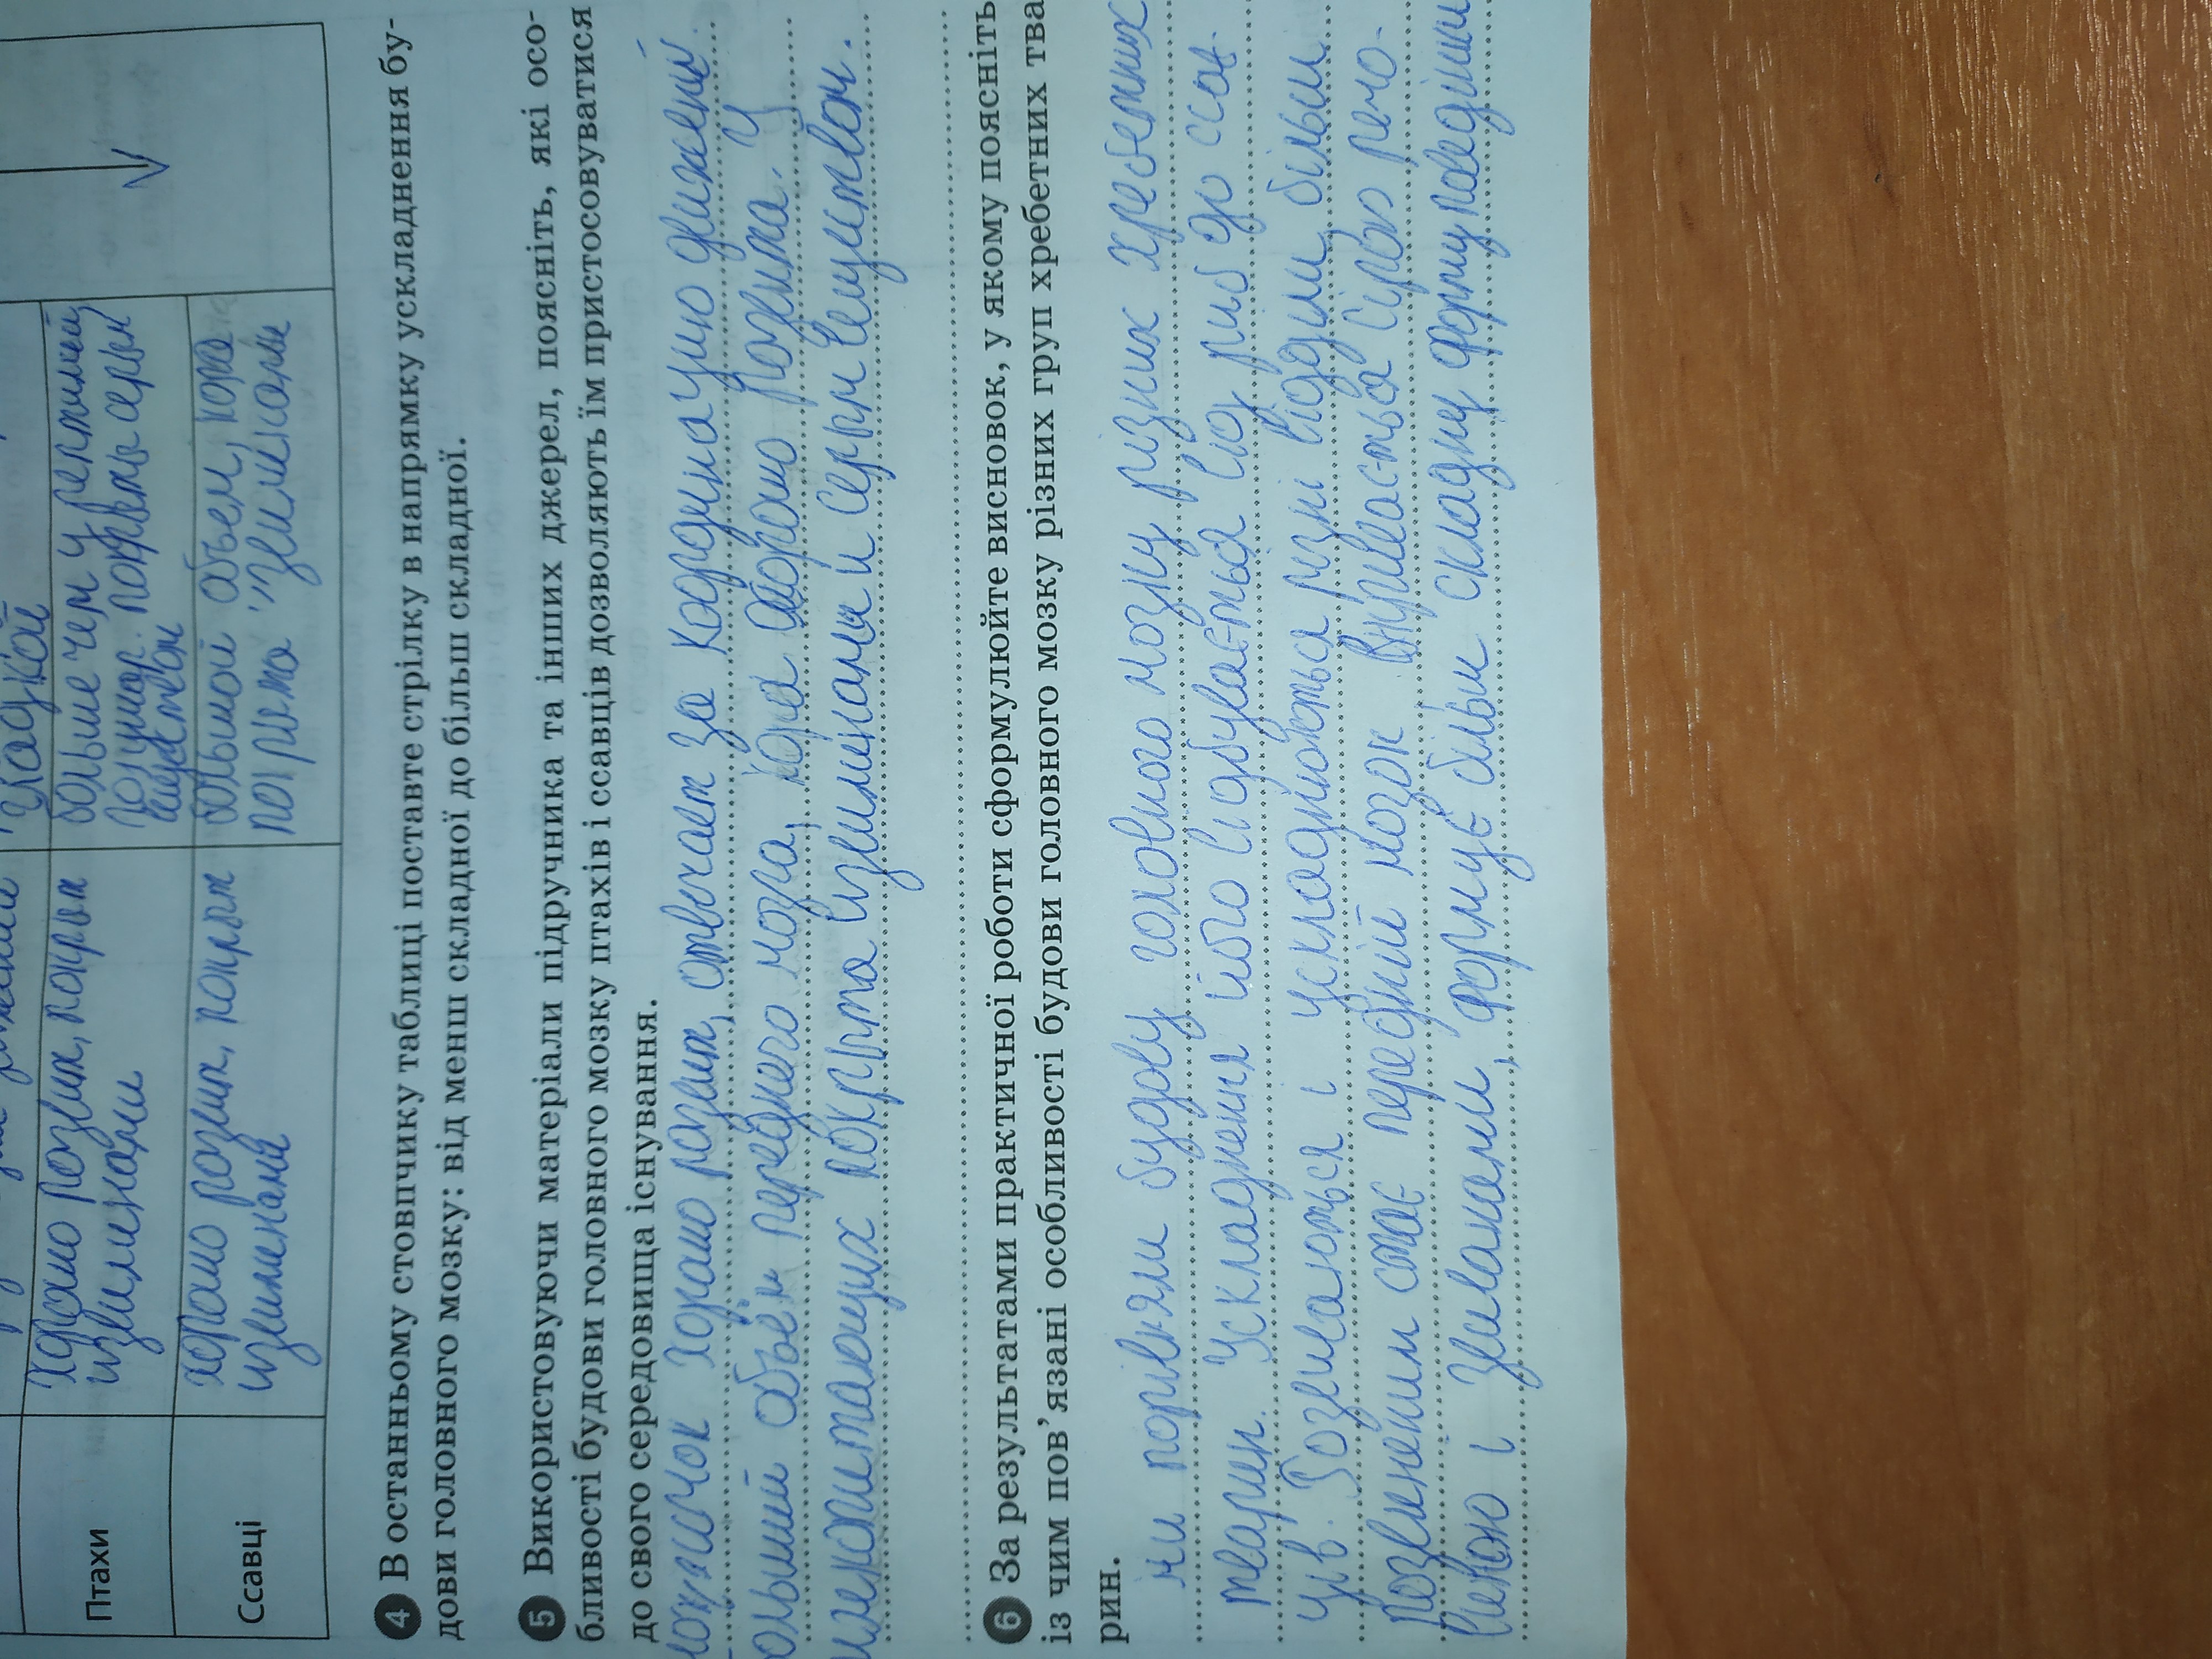 гладкой
Птахи
хорошо развит, покрыт
извилинами
больше чем у рептилий
полушар. покрыты серым
веществом
Ссавці
хорошо развит, покрыт
извилинами
большой объем, кора
покрыта извилинами
4 В останньому стовпчику таблиці поставте стрілку в напрямку ускладнення бу-
дови головного мозку: від менш складної до більш складної.
5 Використовуючи матеріали підручника та інших джерел, поясніть, які осо-
бливості будови головного мозку птахів і ссавців дозволяють їм пристосовуватися
до свого середовища існування.
хорошо развит, отвечает за координацию движений.
объём переднего мозга, кора хорошо развита. У
млекопитающих покрыта извилинами и серым веществом.
6 За результатами практичної роботи сформулюйте висновок, у якому поясніть
із чим пов’язані особливості будови головного мозку різних груп хребетних тва
рин.
ми порівняли будову головного мозку різних хребетних
тварин. Ускладнення його відбувається від риб до ссав-
ців. Розвиваються і ускладнюються різні відділи, більш
розвиненим стає передній мозок вкривається сірою речо-
виною і звивинами, формує більш складну форму поведінки